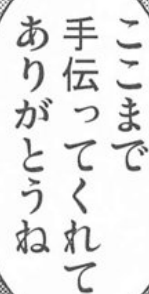 ここまで
手伝ってくれて
ありがとうね